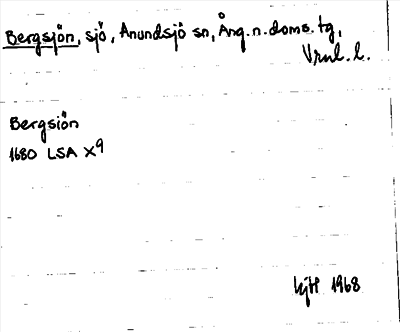 Bergsjön, sjö, Anundsjö sn, Ång. n. doms. tg,
Vrnl. l.
Bergsiön
1680 LSA X9
1968